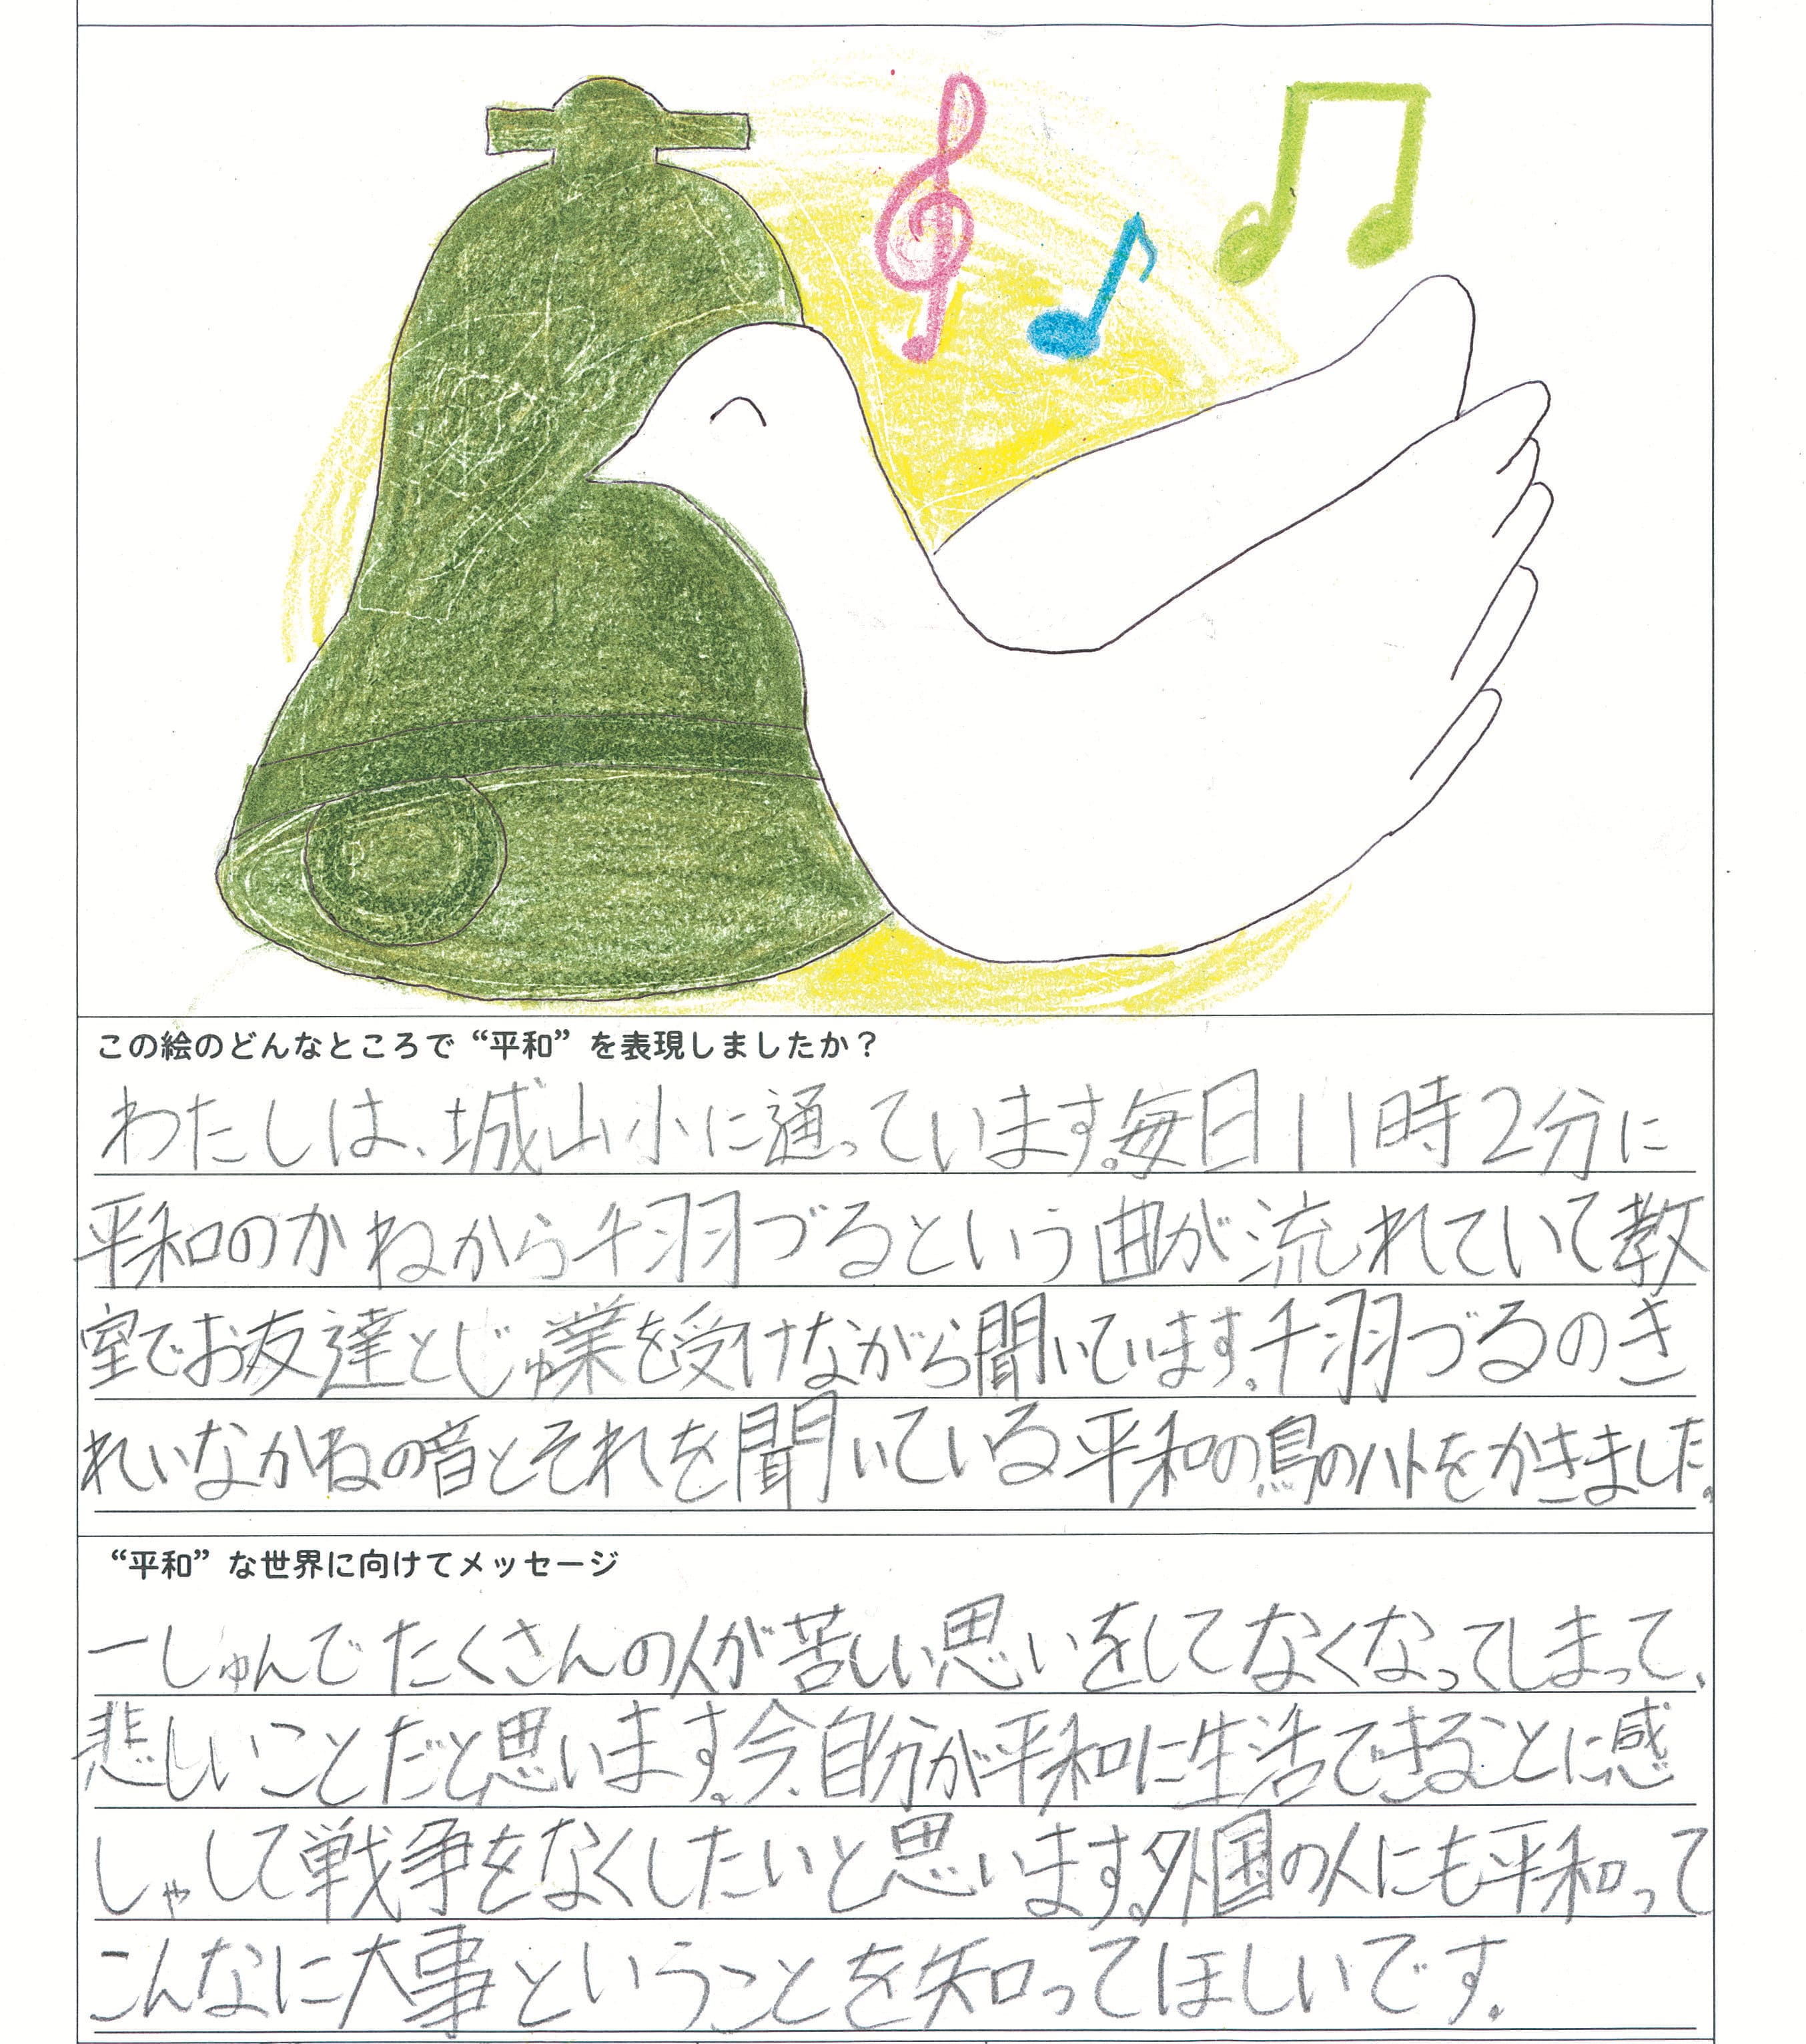 この絵のどんなところで“平和”を表現しましたか？
わたしは、城山小に通っています。毎日11時2分に
平和のかねから千羽づるという曲が流れていて教
室でお友達とじゅ業を受けながら聞いています。千羽づるのき
れいなかねの音とそれを聞いている平和の鳥のハトをかきました。
“平和”な世界に向けてメッセージ
一しゅんでたくさんの人が苦しい思いをしてなくなってしまって、
悲しいことだと思います。今、自分が平和に生活できることに感
しゃして戦争をなくしたいと思います。外国の人にも平和って
こんなに大事ということを知ってほしいです。